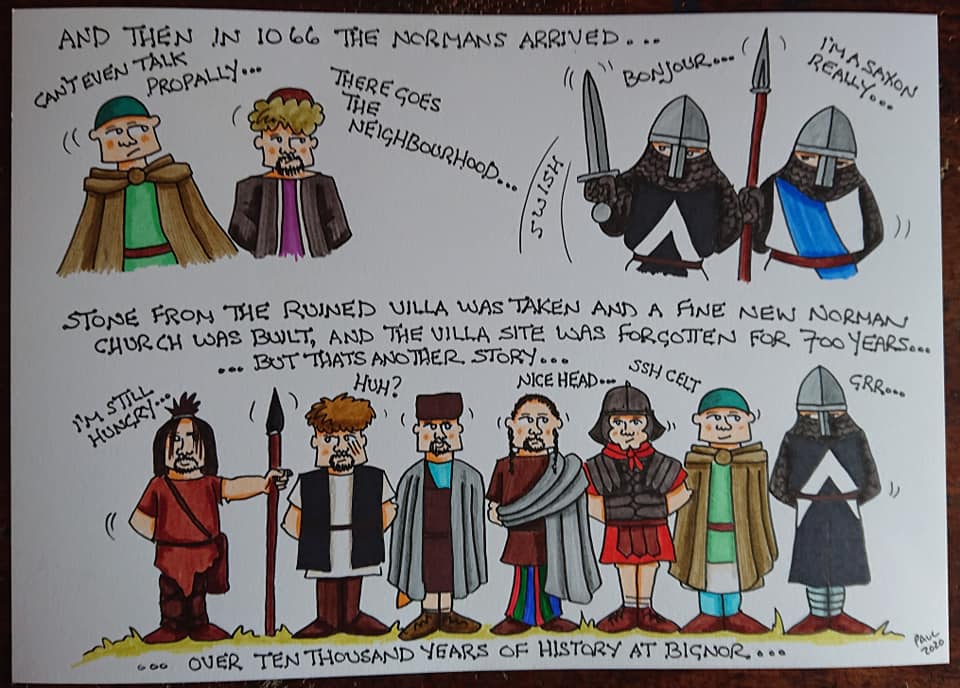 AND THEN IN 1066 THE NORMANS ARRIVED...
CAN'T EVEN TALK
PROPALLY...
THERE GOES
THE
NEIGHBOURHOOD...
SWISH
BONJOUR...
I'M A SAXON
REALLY...
STONE FROM THE RUINED VILLA WAS TAKEN AND A FINE NEW NORMAN
CHURCH WAS BUILT, AND THE VILLA SITE WAS FORGOTTEN FOR 700 YEARS...
... BUT THATS ANOTHER STORY...
I'M STILL
HUNGRY...
HUH?
NICE HEAD...
SSH CELT
GRR...
... OVER TEN THOUSAND YEARS OF HISTORY AT BIGNOR...
PAUL
2020